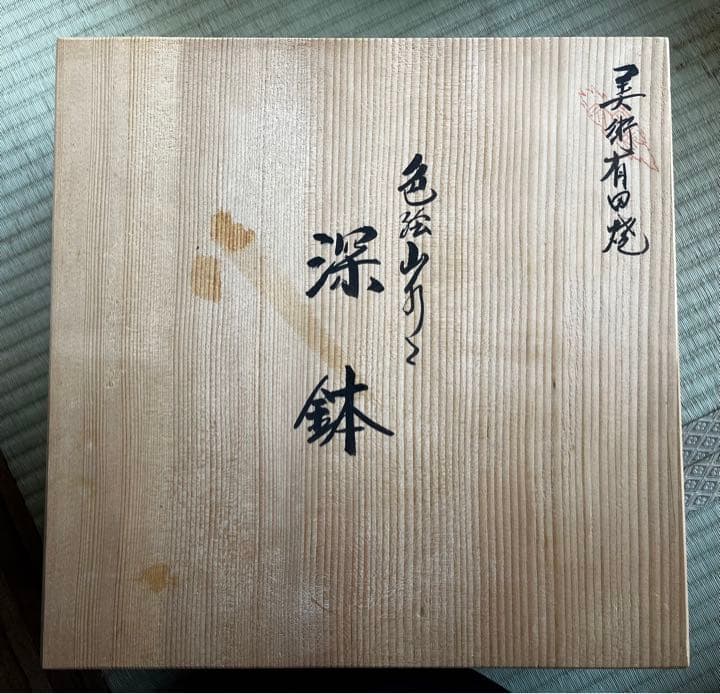 美術有田焼
色絵山水
深鉢